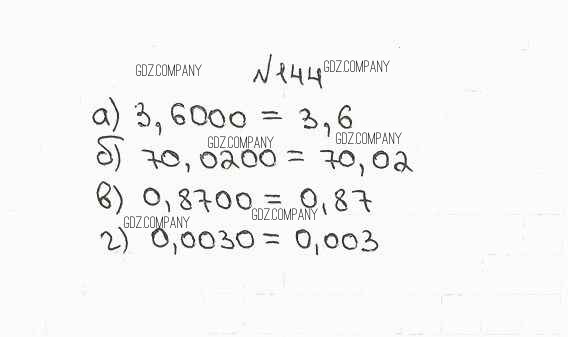 GDZ.COMPANY №144 GDZ.COMPANY
а) 3,6000 = 3,6
GDZ.COMPANY GDZ.COMPANY
б) 70,0200 = 70,02
в) 0,8700 = 0,87
GDZ.COMPANY GDZ.COMPANY
г) 0,0030 = 0,003